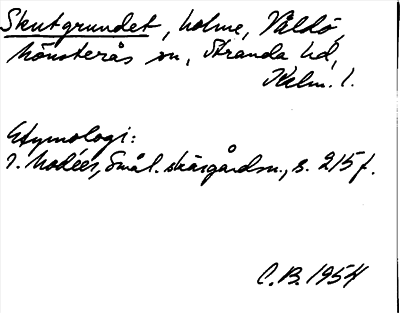 Skutgrundet, holme, Vållö,
Mönsterås sn, Stranda hd,
Kalm. l.
Etymologi:
I. Modéer, Smål. skärgårdsn., s. 215 f.
C.B. 1954